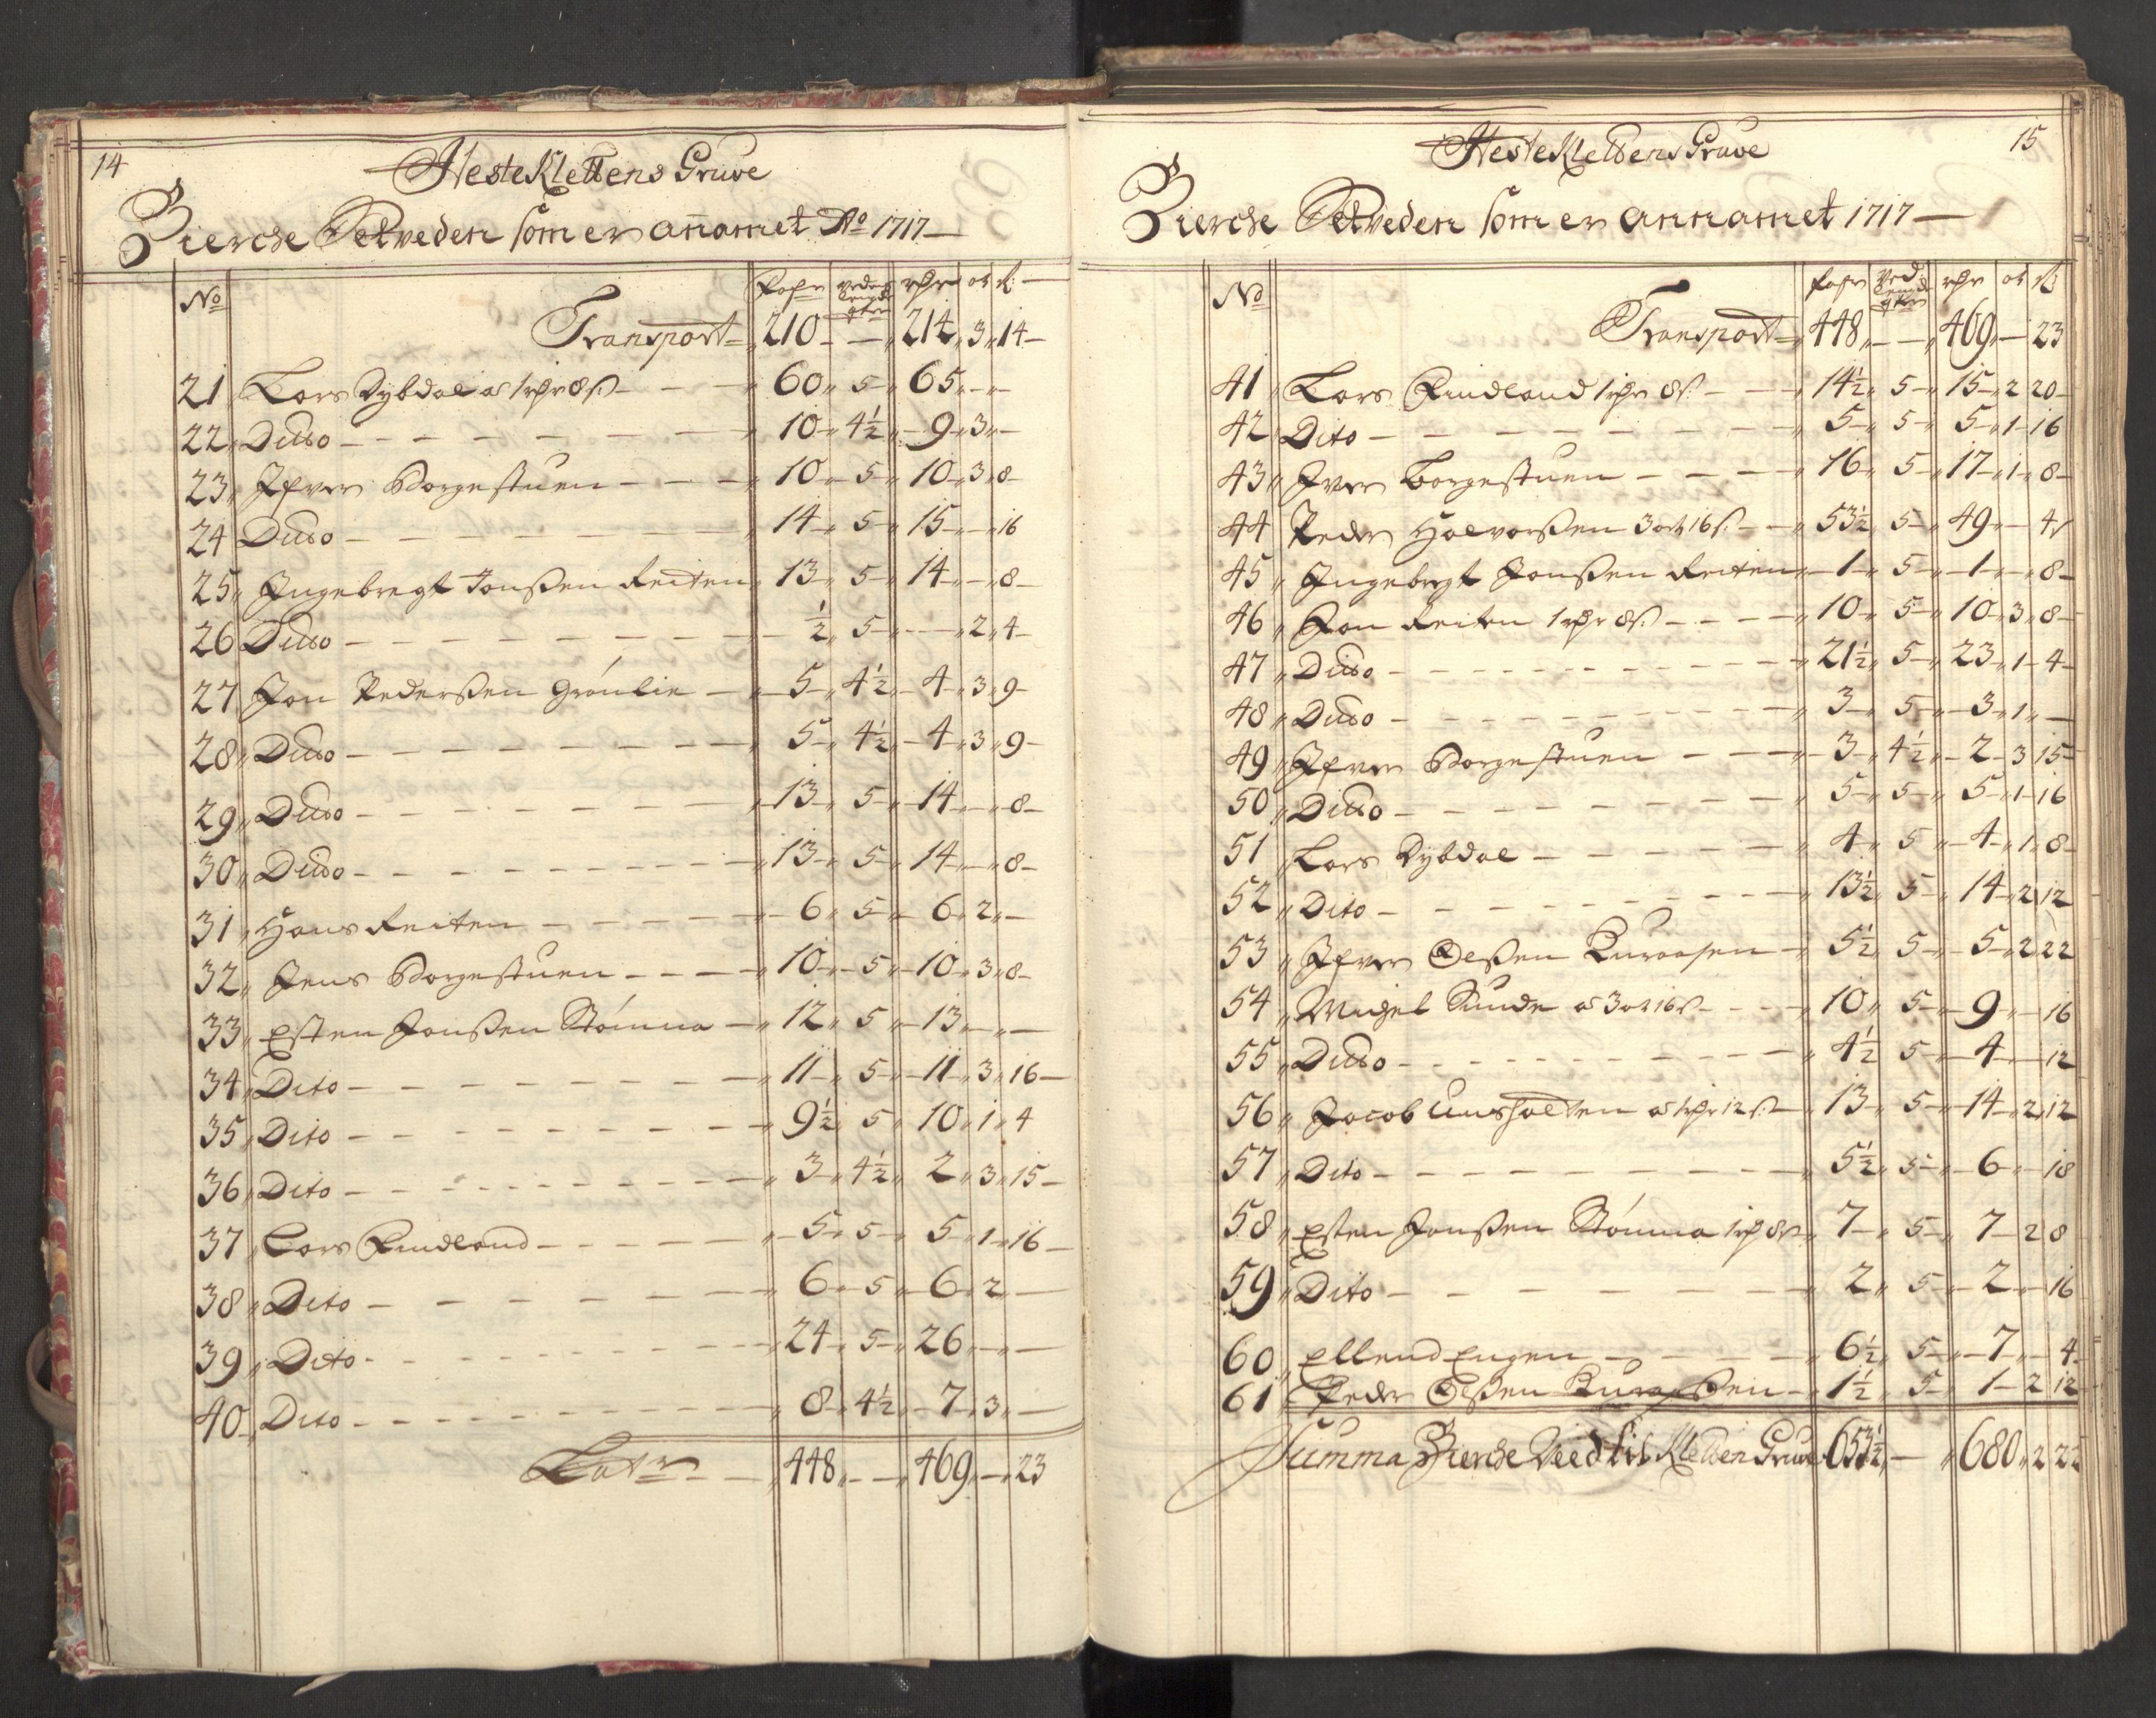 14
HesteKlettens Gruve
Bierche Setveden som er añamet Ao 1717
No Rdr ort ß
Transport 210 214 3 14
21 Lars Dybdal a 1 rdr 8 ß 60 5 65
22 Ditto 10 4½ 9 3
23 Ifver Borgestuen 10 5 10 3 8
24 Ditto 14 5 15 16
25 Ingebregt Jonßen Reiten 13 5 14 8
26 Ditto ½ 5 2 4
27 Jon Pederßen Grønlie 5 4½ 4 3 9
28 Ditto 5 4½ 4 3 9
29 Ditto 13 5 14 8
30 Ditto 13 5 14 8
31 Hans Reiten 6 5 6 2
32 Jens Borgestuen 10 5 10 3 8
33 Esten Jonßen Stømna 12 5 13
34 Dito 11 5 11 3 16
35 Dito 9½ 5 10 1 4
36 Dito 3 4½ 2 3 15
37 Lars Rindland 5 5 5 1 16
38 Dito 6 5 6 2
39 Dito 24 5 26
40 Dito 8 4½ 7 3
Later 448 469 23
15
HesteKlettens Gruve
Bierche Setveden som er annamet 1717
No rdr ort ß
Transport 448 469 23
41 Lars Rindland 1 rdr 8 ß 14½ 5 15 2 20
42 Dito 5 5 5 1 16
43 Iver Borgestuen 16 5 17 1 8
44 Peder Halvorßen 3 ort 16 ß 53½ 5 49 4
45 Ingebregt Jonßen Reiten 1 5 1 8
46 Jon Reiten 1 rdr 8 ß 10 5 10 3 8
47 Ditto 21½ 5 23 1 4
48 Ditto 3 5 3 1
49 Ifver Borgestuen 3 4½ 2 3 15
50 Ditto 5 5 5 1 16
51 Lars Dybdal 4 5 4 1 8
52 Dito 13½ 5 14 2 12
53 Ifver Olßen Kuraasen 5½ 5 5 2 22
54 Migel Sunde a 3 ort 16 ß 10 5 9 16
55 Ditto 4½ 5 4 12
56 Jacob Aasholten a 1 rdr 12 ß 13 5 14 2 12
57 Dito 5½ 5 6 18
58 Esten Jonßen Stømna 1 rd 8 ß 7 5 7 2 8
59 Dito 2 5 2 16
60 Ellend Engen 6½ 5 7 4
61 Peder Olßen 1½ 5 1 2 12
Summa Bierche Veed til Kletten Gruve 653½ 680 2 22